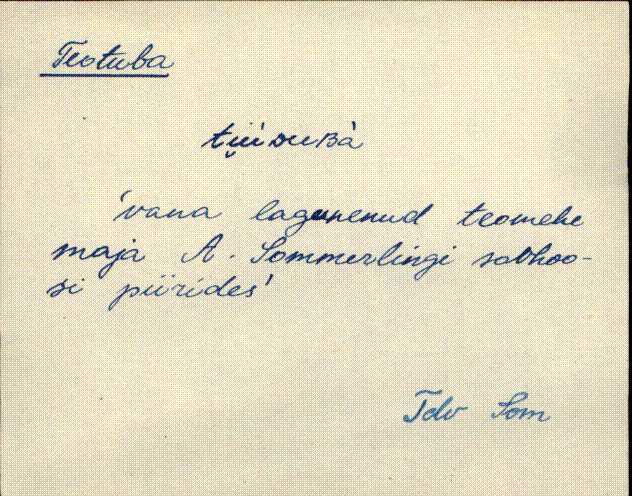 Teotuba
tüɪ̀ᴅuʙà
'vana lagunenud teomehe
maja A. Sommerlingi sovhoo-
si piirides'
Tdv Som